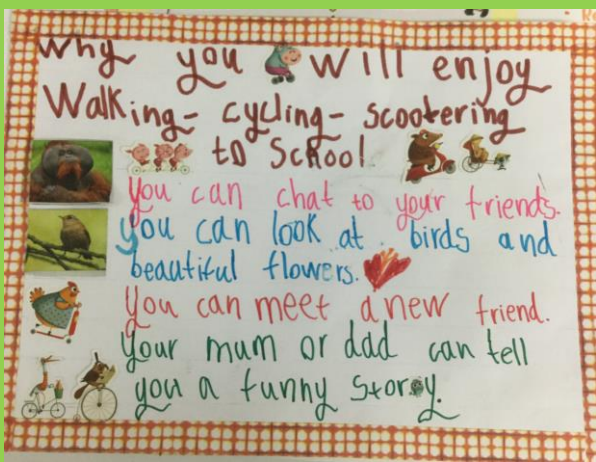 Why you will enjoy
Walking- cycling- scootering
to School
You can chat to your friends.
You can look at birds and
beautiful flowers.
You can meet a new friend.
Your mum or dad can tell
you a funny story.